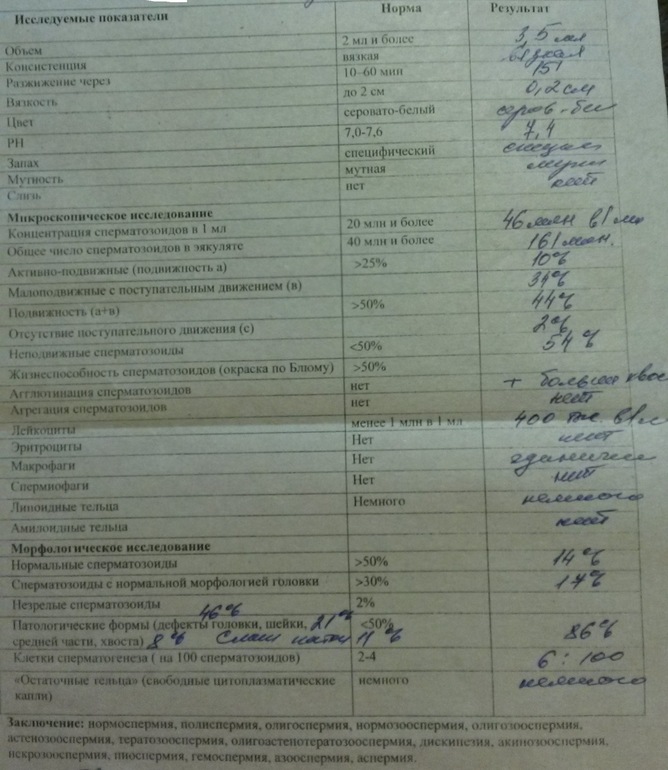 Исследуемые показатели Норма Результат
Объем 2 мл и более 3,5 мл
Консистенция вязкая вязкая
Разжижение через 10–60 мин 15'
Вязкость до 2 см 0,2 см
Цвет серовато-белый серов.-бел
РН 7,0-7,6 7,4
Запах специфический
Мутность мутная
Слизь нет нет
Микроскопическое исследование
Концентрация сперматозоидов в 1 мл 20 млн и более 46 млн в 1 мл
Общее число сперматозоидов в эякуляте 40 млн и более 161 млн.
Активно-подвижные (подвижность а) >25% 10%
Малоподвижные с поступательным движением (в) 34%
Подвижность (а+в) >50% 44%
Отсутствие поступательного движения (с) 2%
Неподвижные сперматозоиды <50% 54%
Жизнеспособность сперматозоидов (окраска по Блюму) >50%
Агглютинация сперматозоидов нет +
Агрегация сперматозоидов нет нет
Лейкоциты менее 1 млн в 1 мл 400 тыс. в 1 мл
Эритроциты Нет нет
Макрофаги Нет единичные
Спермиофаги Нет нет
Липоидные тельца Немного немного
Амилоидные тельца нет
Морфологическое исследование
Нормальные сперматозоиды >50% 14%
Сперматозоиды с нормальной морфологией головки >30% 17%
Незрелые сперматозоиды 2%
46%
Патологические формы (дефекты головки, шейки, 21% <50% 86%
средней части, хвоста) 8% 11%
Клетки сперматогенеза ( на 100 сперматозоидов) 2-4 6 : 100
«Остаточные тельца» (свободные цитоплазматические немного немного
капли)
Заключение: нормоспермия, полиспермия, олигоспермия, нормозооспермия, олигозооспермия,
астенозооспермия, тератозооспермия, олигоастенотератозооспермия, дискинезия, акинозооспермия,
некрозооспермия, пиоспермия, гемоспермия, азооспермия, аспермия.